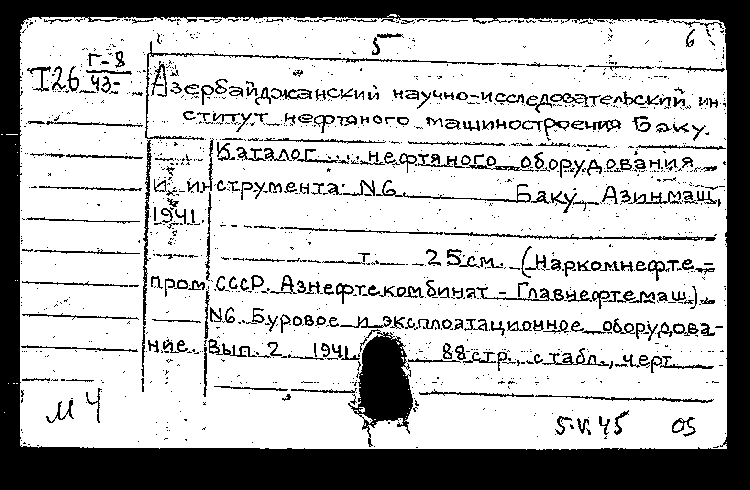 5 6
I26 Г-8/43-
Азербайджанский научно-исследовательский ин
ститут нефтяного машиностроения Баку.
Каталог ... нефтяного оборудования
и инструмента: N6. Баку, Азинмаш,
1941.
т. 25см. (Наркомнефте-
пром СССР. Азнефтекомбинат - Главнефтемаш).
N6. Буровое и эксплоатационное оборудова-
ние. Вып. 2. 1941. 88стр., с табл., черт
М 4
5.VI.45 05